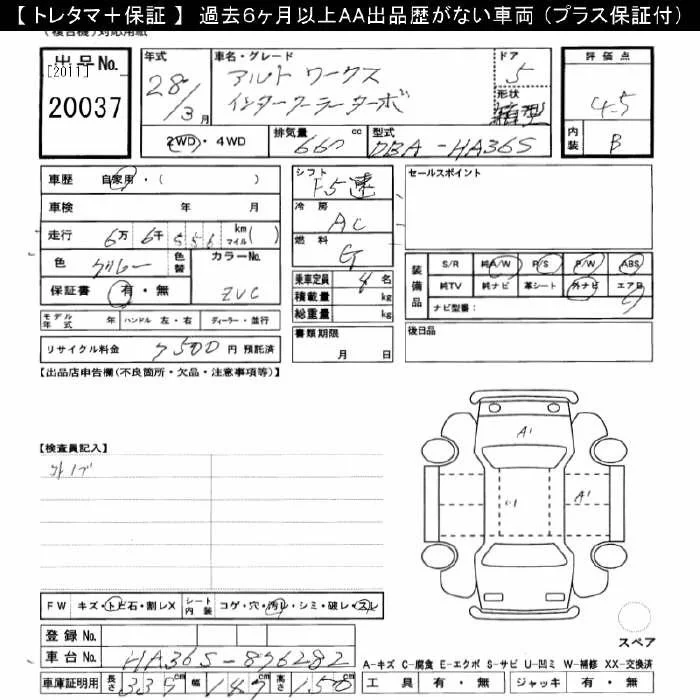 【 トレタマ＋保証 】 過去6ヶ月以上AA出品歴がない車両 (プラス保証付)
(複合機)対応用紙
出品No.
[2011]
20037
年式
28/3月
車名・グレード
アルト ワークス
インタークーラーターボ
ドア
5
形状
箱型
評価点
4.5
内装
B
2WD・4WD
排気量
660 cc
型式
DBA-HA36S
車歴 自家用・( )
車検 年 月
走行 6万 6千 5 5 6 km マイル( )
色 グレー 色替 カラーNo. ZVC
保証書 有・無
モデル年式 年 ハンドル 左・右 ディーラー・並行
リサイクル料金 7500 円 預託済
シフト
F5速
冷房
AC
燃料
G
乗車定員 4 名
積載量 kg
総重量 kg
書類期限
月 日
セールスポイント
装備品
S/R 純A/W P/S P/W ABS
純TV 純ナビ 革シート 外ナビ エアB
ナビ型番:
後日品
【出品店申告欄(不良箇所・欠品・注意事項等)】
【検査員記入】
外ナビ
FW キズ・トビ石・割レX シート内装 コゲ・穴・汚レ・シミ・破レ・スレ
登録No.
車台No. HA36S-896282
車庫証明用 長さ 339 cm 幅 147 cm 高さ 150 cm
A1
A1
スペア
A-キズ C-腐食 E-エクボ S-サビ U-凹ミ W-補修 XX-交換済
工具 有・無 ジャッキ 有・無